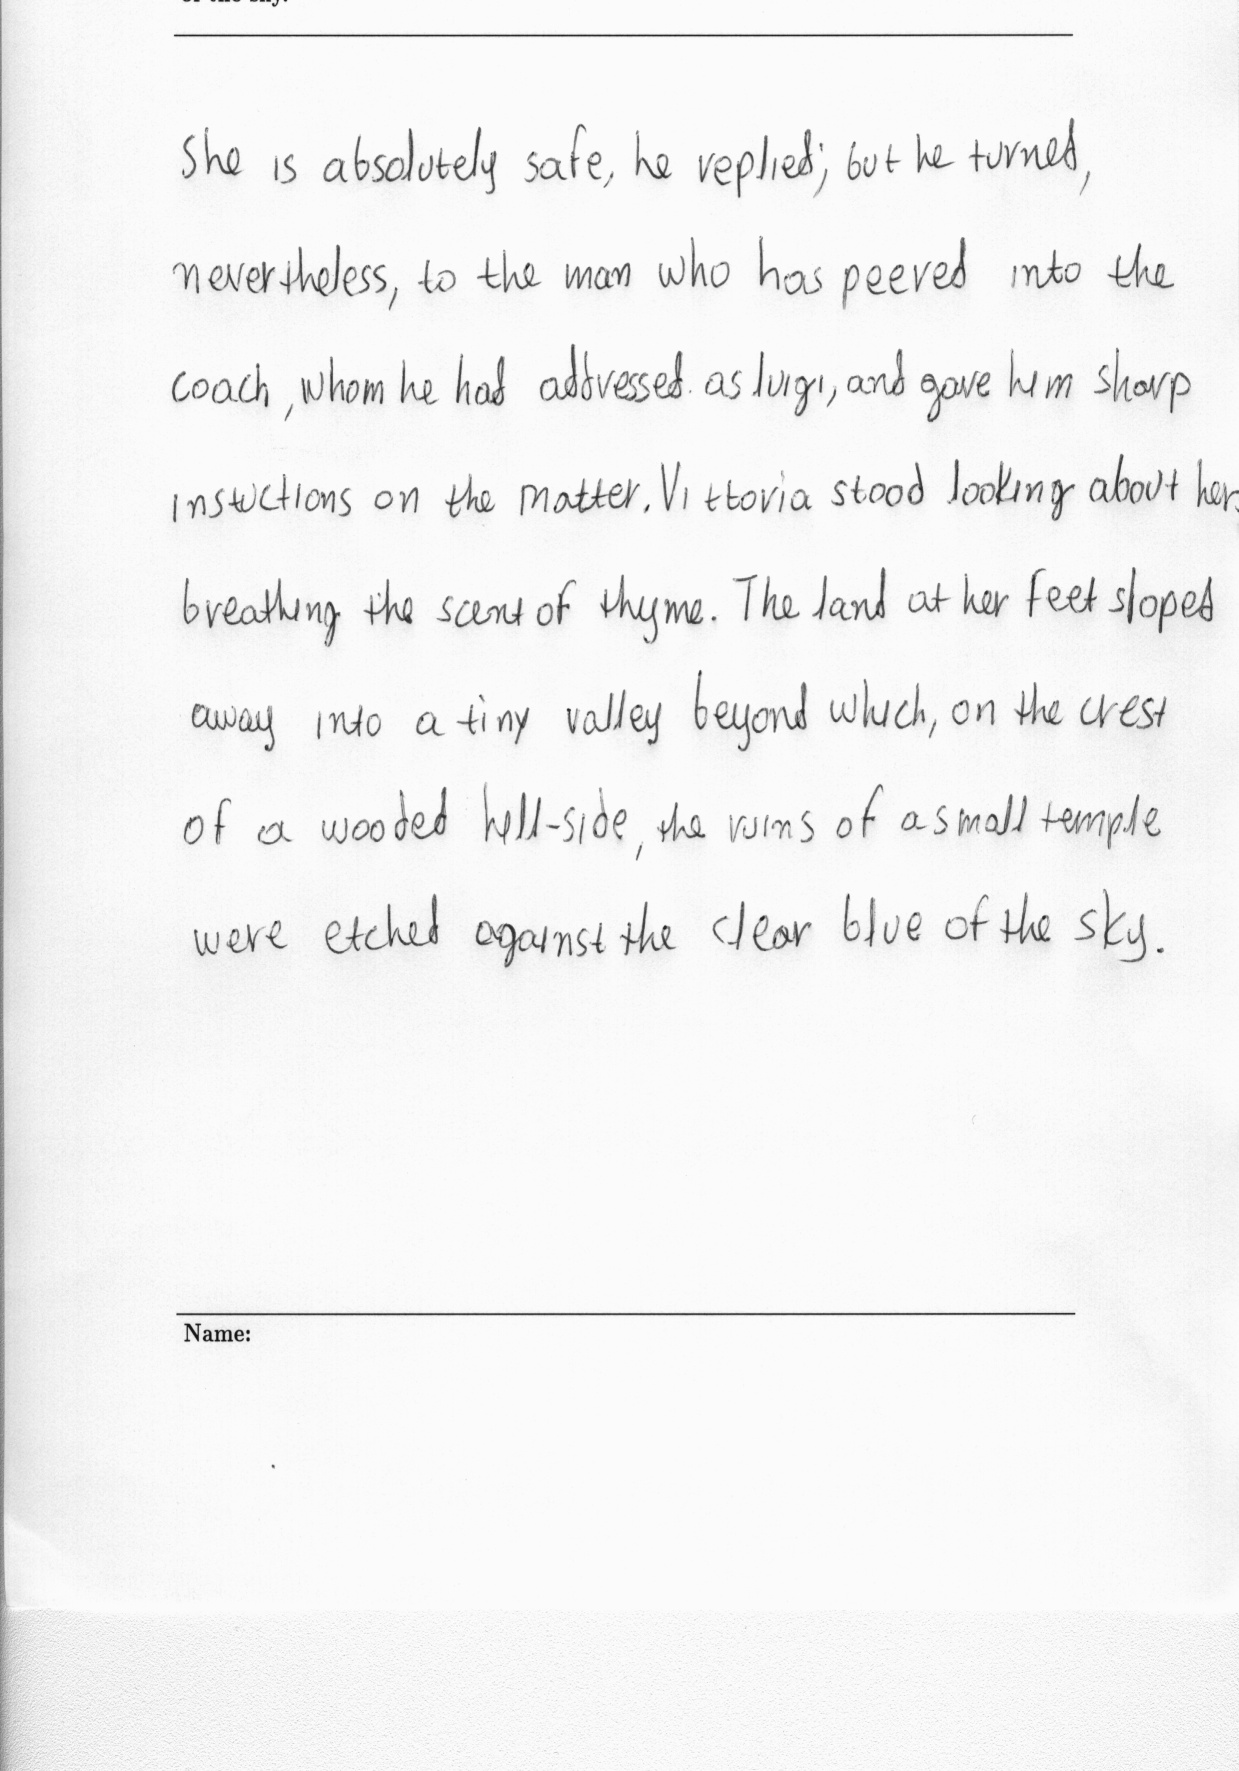 of the sky.
She is absolutely safe, he replied; but he turned,
nevertheless, to the man who has peered into the
coach, whom he had addressed as luigi, and gave him sharp
instuctions on the matter. Vittoria stood looking about her,
breathing the scent of thyme. The land at her feet sloped
away into a tiny valley beyond which, on the crest
of a wooded hill-side, the ruins of a small temple
were etched against the clear blue of the sky.
Name: